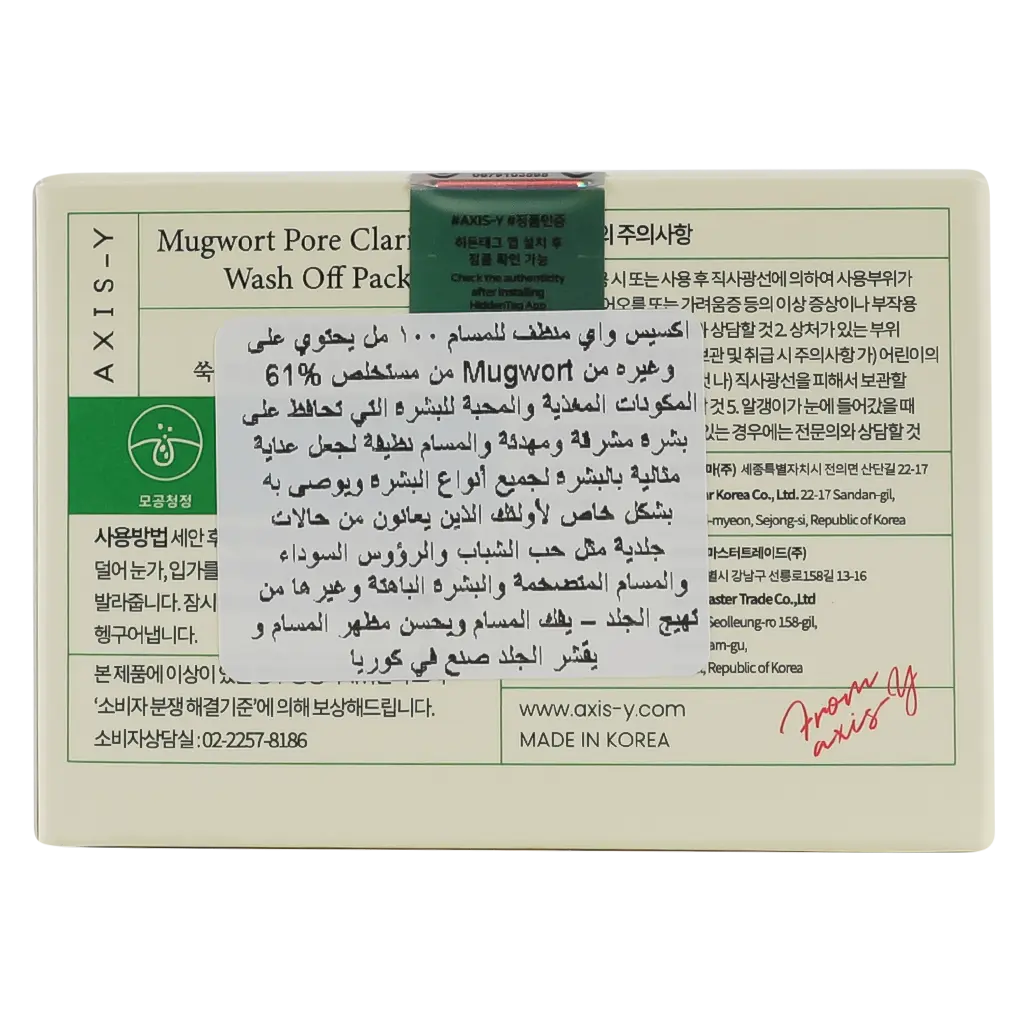 AXIS-Y
Mugwort Pore Clari
Wash Off Pack
쑥
모공청정
사용방법 세안 후
덜어 눈가, 입가를
발라줍니다. 잠시
헹구어냅니다.
본 제품에 이상이 있
'소비자 분쟁 해결기준'에 의해 보상해드립니다.
소비자상담실 : 02-2257-8186
#AXIS-Y #정품인증
히든태그 앱 설치 후
정품 확인 가능
Check the authenticity
after installing
HiddenTag App
اكسيس واي منظف للمسام ١٠٠ مل يحتوي على
61% من مستخلص Mugwort وغيره من
المكونات المغذية والمحبة للبشرة التي تحافظ على
بشرة مشرقة ومهدئة والمسام نظيفة لجعل عناية
مثالية بالبشرة لجميع أنواع البشرة ويوصى به
بشكل خاص لأولئك الذين يعانون من حالات
جلدية مثل حب الشباب والرؤوس السوداء
والمسام المتضخمة والبشرة الباهتة وغيرها من
تهيج الجلد – يفك المسام ويحسن مظهر المسام و
يقشر الجلد صنع في كوريا
의 주의사항
시 또는 사용 후 직사광선에 의하여 사용부위가
어오름 또는 가려움증 등의 이상 증상이나 부작용
상담할 것 2. 상처가 있는 부위
보관 및 취급 시 주의사항 가) 어린이의
나) 직사광선을 피해서 보관할
것 5. 알갱이가 눈에 들어갔을 때
있는 경우에는 전문의와 상담할 것
마(주) 세종특별자치시 전의면 산단길 22-17
ar Korea Co., Ltd. 22-17 Sandan-gil,
-myeon, Sejong-si, Republic of Korea
마스터트레이드(주)
별시 강남구 선릉로158길 13-16
aster Trade Co.,Ltd
Seolleung-ro 158-gil,
am-gu,
, Republic of Korea
www.axis-y.com
MADE IN KOREA
From
axis Y